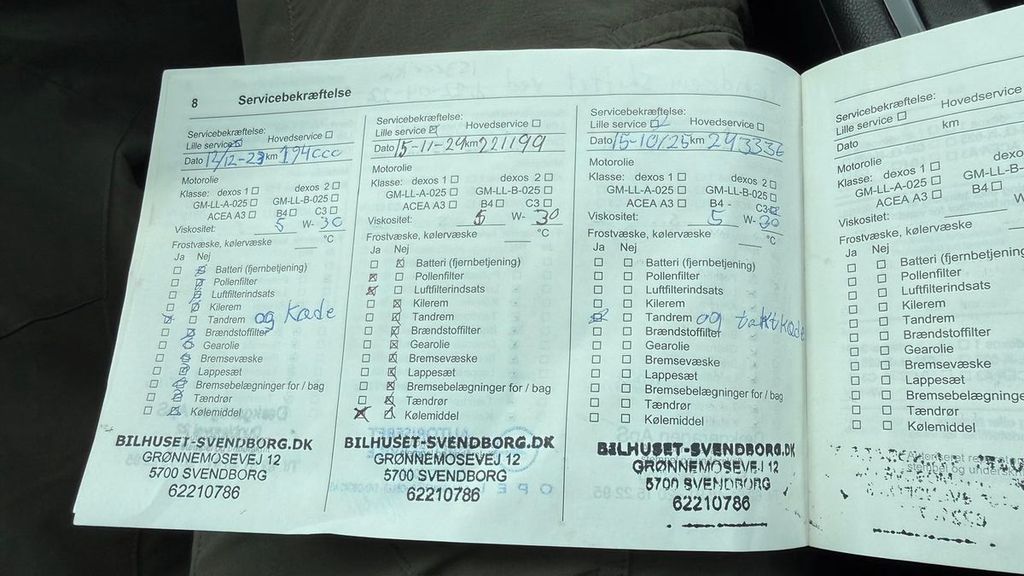 8 Servicebekræftelse
Servicebekræftelse:
Lille service ☒ Hovedservice ☐
Dato km 174000
Motorolie
Klasse: dexos 1 ☐ dexos 2 ☐
GM-LL-A-025 ☐ GM-LL-B-025 ☐
ACEA A3 ☐ B4 ☐ C3 ☐
Viskositet: 5 W- 30
Frostvæske, kølervæske ____ °C
Ja Nej
☐ ☒ Batteri (fjernbetjening)
☐ ☒ Pollenfilter
☐ ☒ Luftfilterindsats
☐ ☒ Kilerem
☒ ☐ Tandrem og Kæde
☐ ☒ Brændstoffilter
☐ ☒ Gearolie
☐ ☒ Bremsevæske
☐ ☒ Lappesæt
☐ ☒ Bremsebelægninger for / bag
☐ ☒ Tændrør
☐ ☒ Kølemiddel
BILHUSET-SVENDBORG.DK
GRØNNEMOSEVEJ 12
5700 SVENDBORG
62210786
Servicebekræftelse:
Lille service ☒ Hovedservice ☐
Dato 15-11-24 km 221199
Motorolie
Klasse: dexos 1 ☐ dexos 2 ☐
GM-LL-A-025 ☐ GM-LL-B-025 ☐
ACEA A3 ☐ B4 ☐ C3 ☐
Viskositet: 5 W- 30
Frostvæske, kølervæske ____ °C
Ja Nej
☐ ☒ Batteri (fjernbetjening)
☒ ☐ Pollenfilter
☒ ☐ Luftfilterindsats
☐ ☒ Kilerem
☐ ☒ Tandrem
☐ ☒ Brændstoffilter
☐ ☒ Gearolie
☐ ☒ Bremsevæske
☐ ☒ Lappesæt
☐ ☒ Bremsebelægninger for / bag
☐ ☒ Tændrør
☒ ☐ Kølemiddel
BILHUSET-SVENDBORG.DK
GRØNNEMOSEVEJ 12
5700 SVENDBORG
62210786
Servicebekræftelse:
Lille service ☒ Hovedservice ☐
Dato 15-10/25 km 243336
Motorolie
Klasse: dexos 1 ☐ dexos 2 ☐
GM-LL-A-025 ☐ GM-LL-B-025 ☐
ACEA A3 ☐ B4 - C3 ☒
Viskositet: 5 W- 30
Frostvæske, kølervæske ____ °C
Ja Nej
☐ ☐ Batteri (fjernbetjening)
☐ ☐ Pollenfilter
☐ ☐ Luftfilterindsats
☐ ☐ Kilerem
☒ ☐ Tandrem og taktkæde
☐ ☐ Brændstoffilter
☐ ☐ Gearolie
☐ ☐ Bremsevæske
☐ ☐ Lappesæt
☐ ☐ Bremsebelægninger for / bag
☐ ☐ Tændrør
☐ ☐ Kølemiddel
BILHUSET-SVENDBORG.DK
GRØNNEMOSEVEJ 12
5700 SVENDBORG
62210786
Servicebekræftelse:
Lille service ☐ Hovedservice ☐
Dato km
Motorolie
Klasse: dexos 1 ☐
GM-LL-A-025 ☐
ACEA A3 ☐ B4 ☐
Viskositet:
Frostvæske, kølervæske
Ja Nej
☐ ☐ Batteri (fjernbetjening)
☐ ☐ Pollenfilter
☐ ☐ Luftfilterindsats
☐ ☐ Kilerem
☐ ☐ Tandrem
☐ ☐ Brændstoffilter
☐ ☐ Gearolie
☐ ☐ Bremsevæske
☐ ☐ Lappesæt
☐ ☐ Bremsebelægninger
☐ ☐ Tændrør
☐ ☐ Kølemiddel